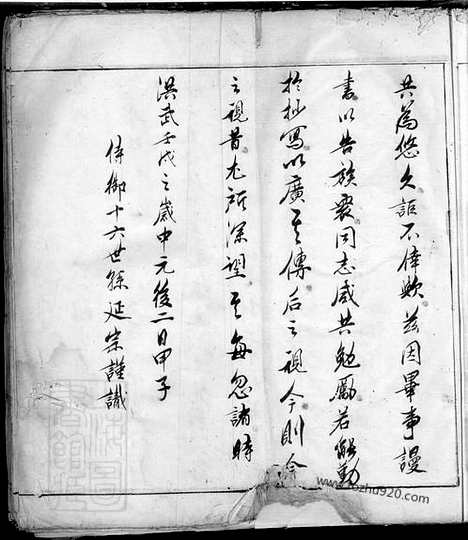 共為悠久詎不偉歟茲因畢事謾
書以告族衆同志咸共勉勵若能勤
於抄寫以廣其傳后之視今則今
之視昔尤所深望其毋忽諸時
洪武壬戌之歲中元後二日甲子
侍御十六世孫延宗謹識
ozhu920.com